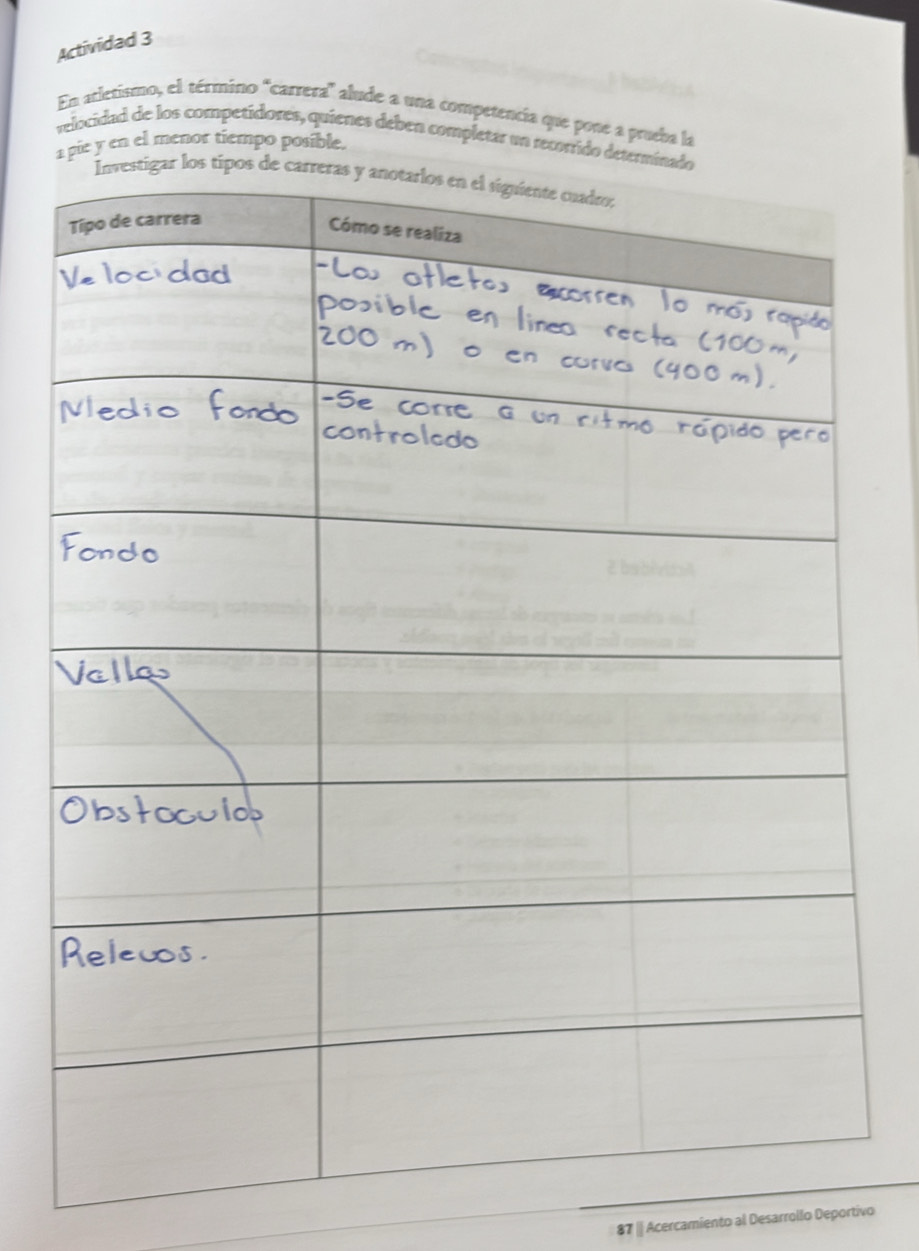 Actividad 3
En atletismo, el término "carrera" alude a una competencia que pone a prueba la
velocidad de los competidores, quienes deben completar un recorrido determinado
a pie y en el menor tiempo posible.
Investigar los tipos de carreras y anotarlos en el siguiente cuadro:
Tipo de carrera
Cómo se realiza
Velocidad
-Los atletas corren lo más rapido
posible en linea recta (100m,
200 m) o en curva (400 m).
Medio fondo
-Se corre a un ritmo rápido pero
controlado
Fondo
Vallas
Obstaculos
Relevos.
87 || Acercamiento al Desarrollo Deportivo